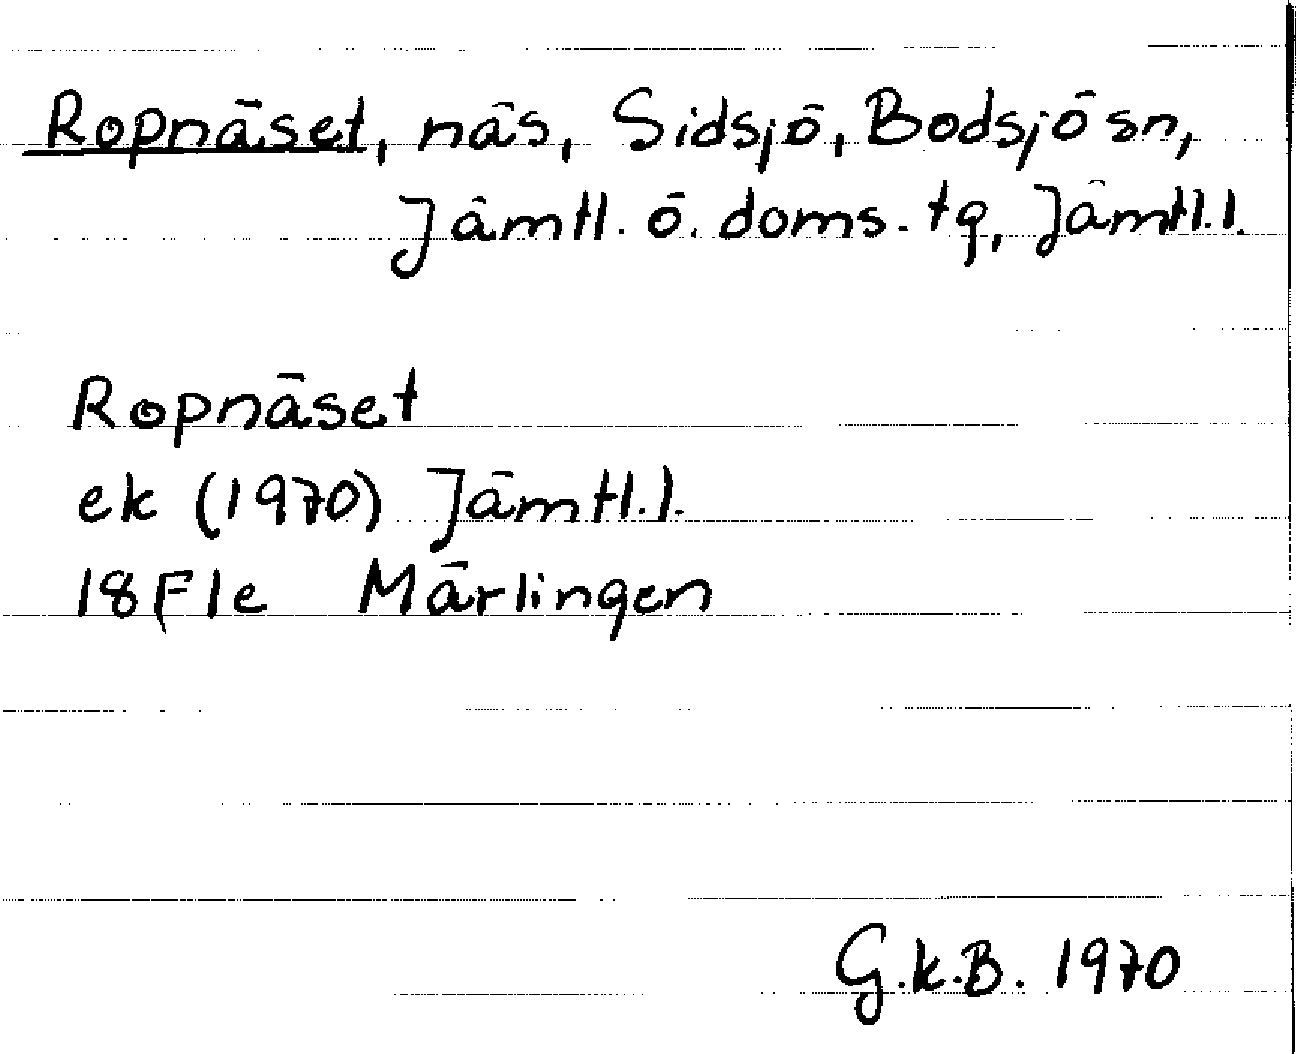 Ropnäset, näs, Sidsjö, Bodsjö sn,
Jämtl. ö. doms. tg, Jämtl.l.
Ropnäset
ek (1970) Jämtl.l.
18F1e Märlingen
G.k.B. 1970